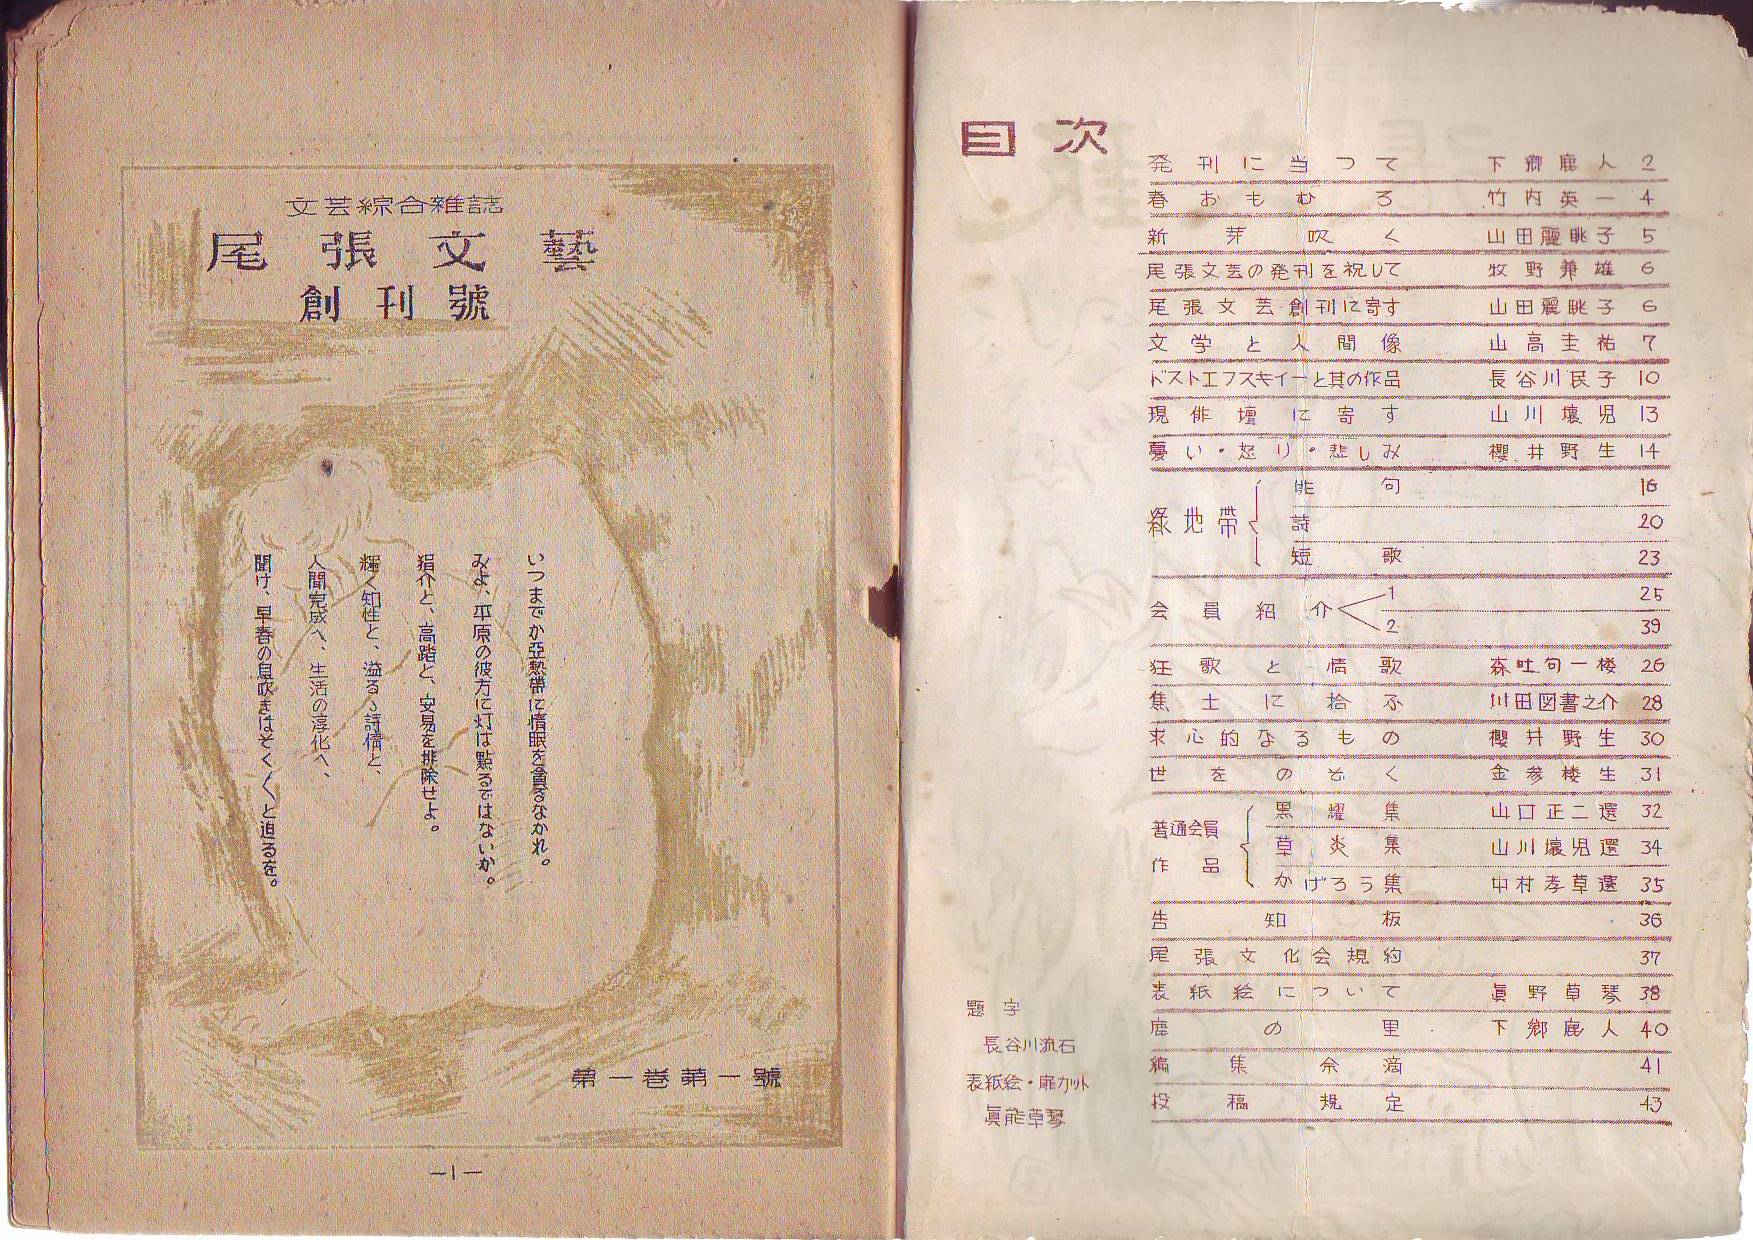 文芸綜合雑誌
尾張文藝
創刊號
いつまでか亞熱帶に惰眠を貪るなかれ。
みよ、平原の彼方に灯は點るではないか。
狷介と、高踏と、安易を排除せよ。
輝く知性と、溢るゝ詩情と、
人間完成へ、生活の淳化へ、
聞け、早春の息吹きはそく〳〵と迫るを。
第一巻第一號
—1—
目次
発刊に当つて 下郷鹿人 2
春おもむろ 竹内英一 4
新芽吹く 山田麗眺子 5
尾張文芸の発刊を祝して 牧野兼雄 6
尾張文芸創刊に寄す 山田麗眺子 6
文学と人間像 山高圭祐 7
ドストエフスキイーと其の作品 長谷川民子 10
現俳壇に寄す 山川壤児 13
憂い・怒り・悲しみ 櫻井野生 14
緑地帶
俳句 16
詩 20
短歌 23
会員紹介
1 25
2 39
狂歌と情歌 森吐句一楼 26
焦土に拾ふ 川田図書之介 28
求心的なるもの 櫻井野生 30
世をのぞく 金参楼生 31
普通会員作品
黒耀集 山口正二選 32
草炎集 山川壤児選 34
かげろう集 中村孝草選 35
告知板 36
尾張文化会規約 37
表紙絵について 眞野草琴 38
鹿の里 下郷鹿人 40
編集余滴 41
投稿規定 43
題字
長谷川流石
表紙絵・扉カット
眞能草琴